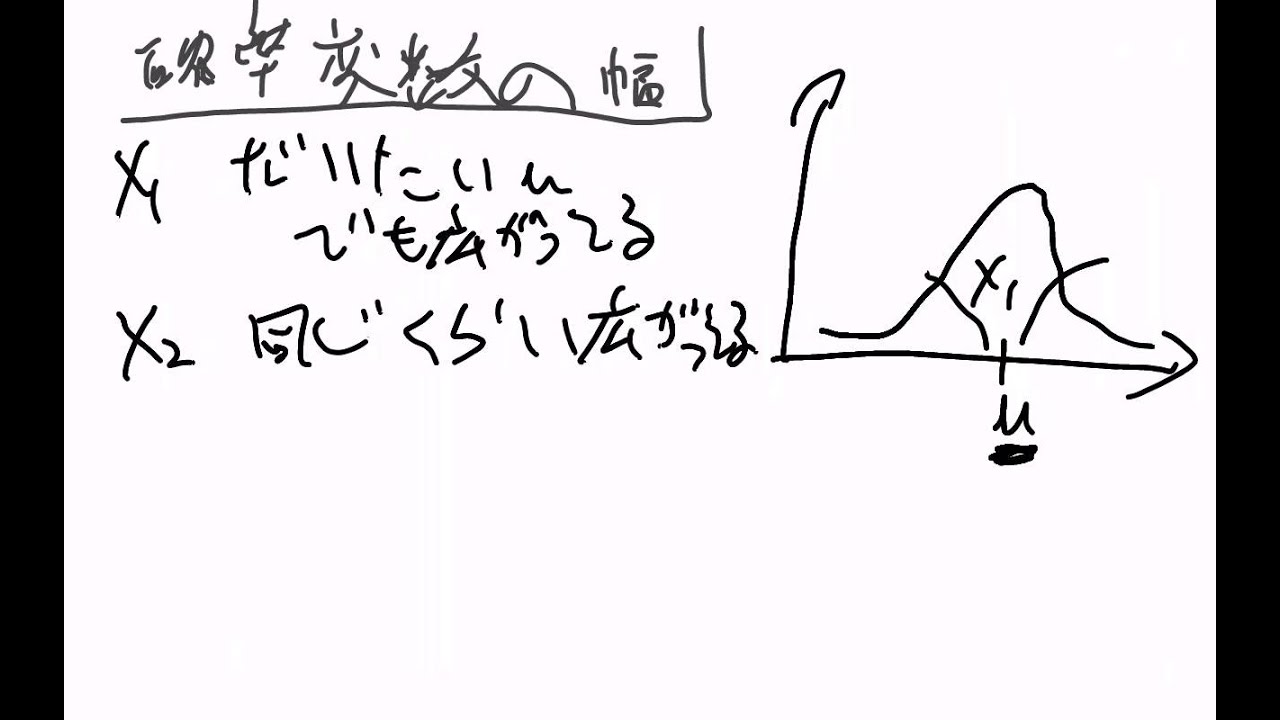 確率変数の幅
X₁ だいたい μ
でも広がってる
X₂ 同じくらい広がってる
X₁
μ